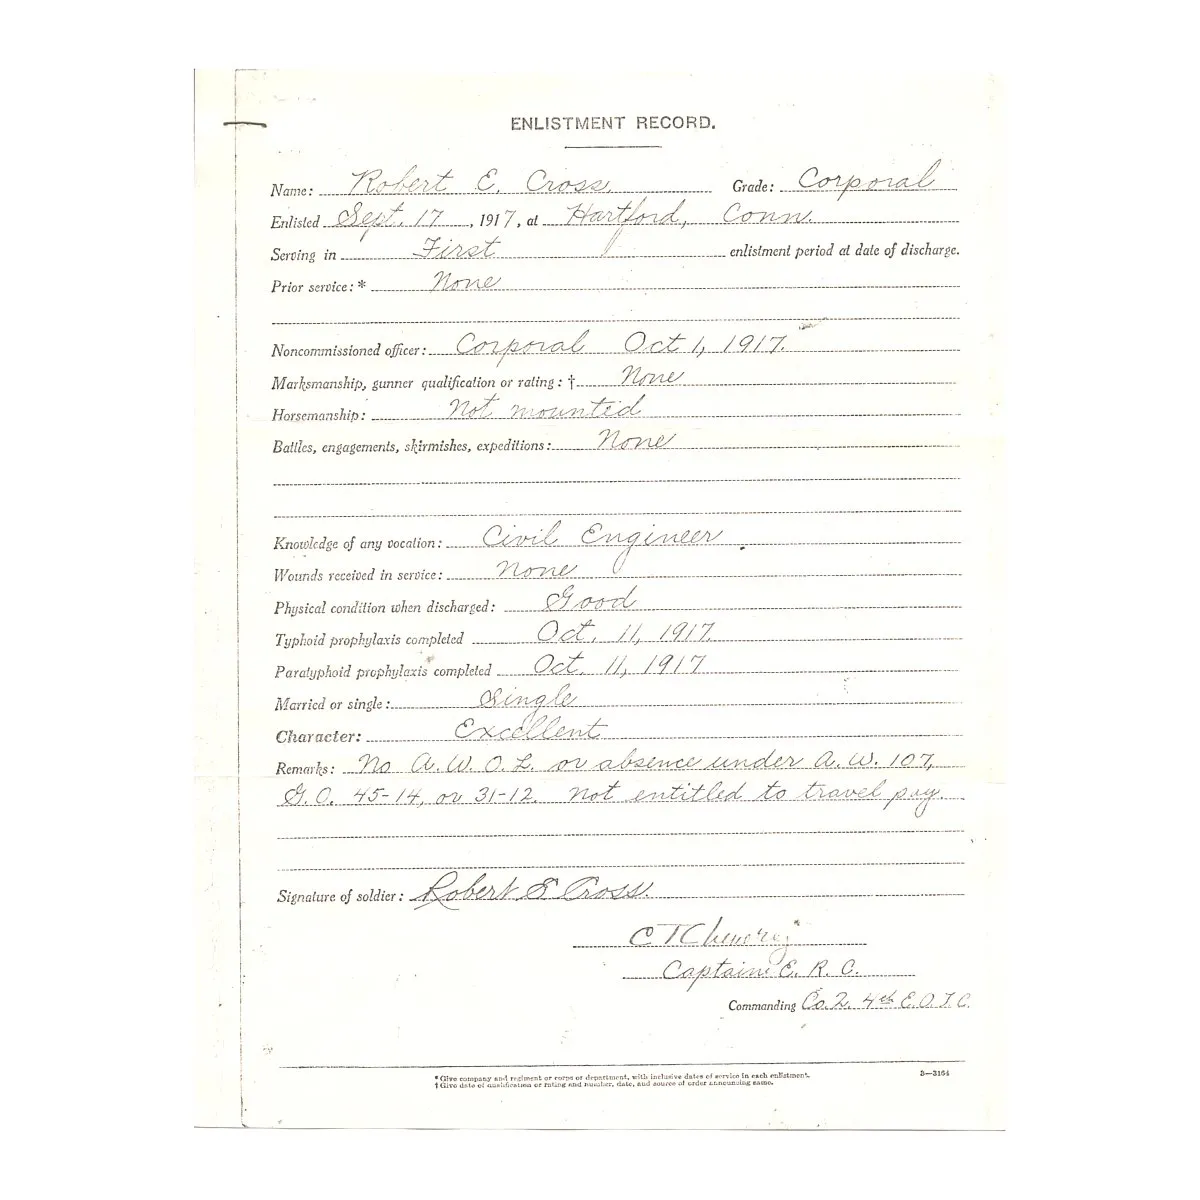 ENLISTMENT RECORD.
Name: Robert E. Cross, Grade: Corporal
Enlisted Sept. 17, 1917, at Hartford, Conn.
Serving in First enlistment period at date of discharge.
Prior service: * None
Noncommissioned officer: Corporal Oct 1, 1917.
Marksmanship, gunner qualification or rating: † None
Horsemanship: Not mounted
Battles, engagements, skirmishes, expeditions: None
Knowledge of any vocation: Civil Engineer
Wounds received in service: None
Physical condition when discharged: Good
Typhoid prophylaxis completed Oct. 11, 1917.
Paratyphoid prophylaxis completed Oct. 11, 1917
Married or single: Single
Character: Excellent
Remarks: No A.W.O.L. or absence under A.W. 107,
G.O. 45-14, or 31-12. Not entitled to travel pay.
Signature of soldier: Robert E Cross.
C T
Captain E. R. C.
Commanding Co. 2. 4th E.O.T.C.
* Give company and regiment or corps or department, with inclusive dates of service in each enlistment. 3—3164
† Give date of qualification or rating and number, date, and source of order announcing same.